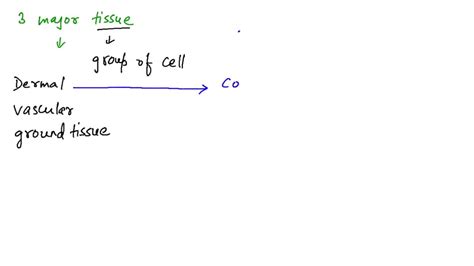 3 major tissue
group of cell
Dermal co
vascular
ground tissue